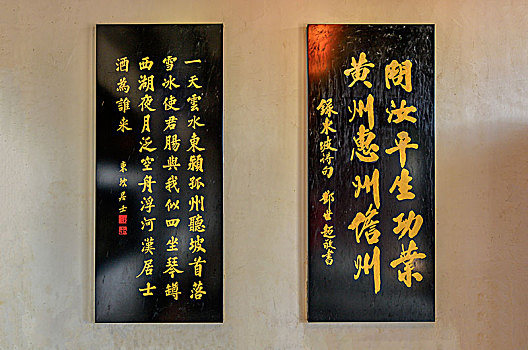 問汝平生功業
黄州惠州儋州
録東坡诗句 鄭世超敬書
一天雲水東潁孤州聽坡首落
雪冰使君腸與我似四坐琴罇
西湖夜月泛空舟浮河漢居士
酒為誰来
東坡居士